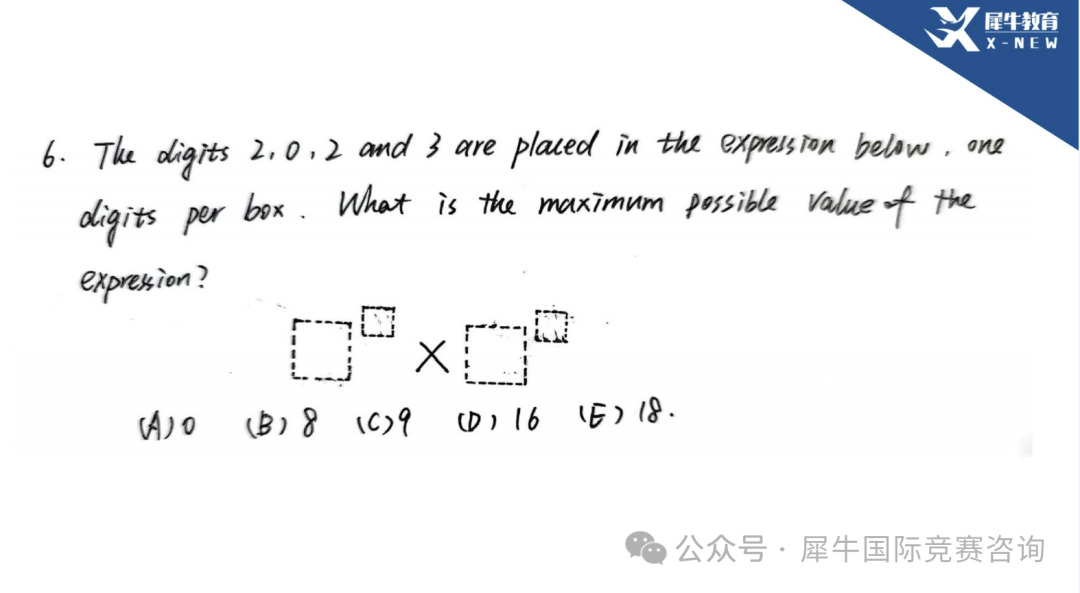 犀牛教育
X-NEW
6. The digits 2, 0, 2 and 3 are placed in the expression below, one
digits per box. What is the maximum possible value of the
expression?
×
(A) 0 (B) 8 (C) 9 (D) 16 (E) 18.
公众号 · 犀牛国际竞赛咨询